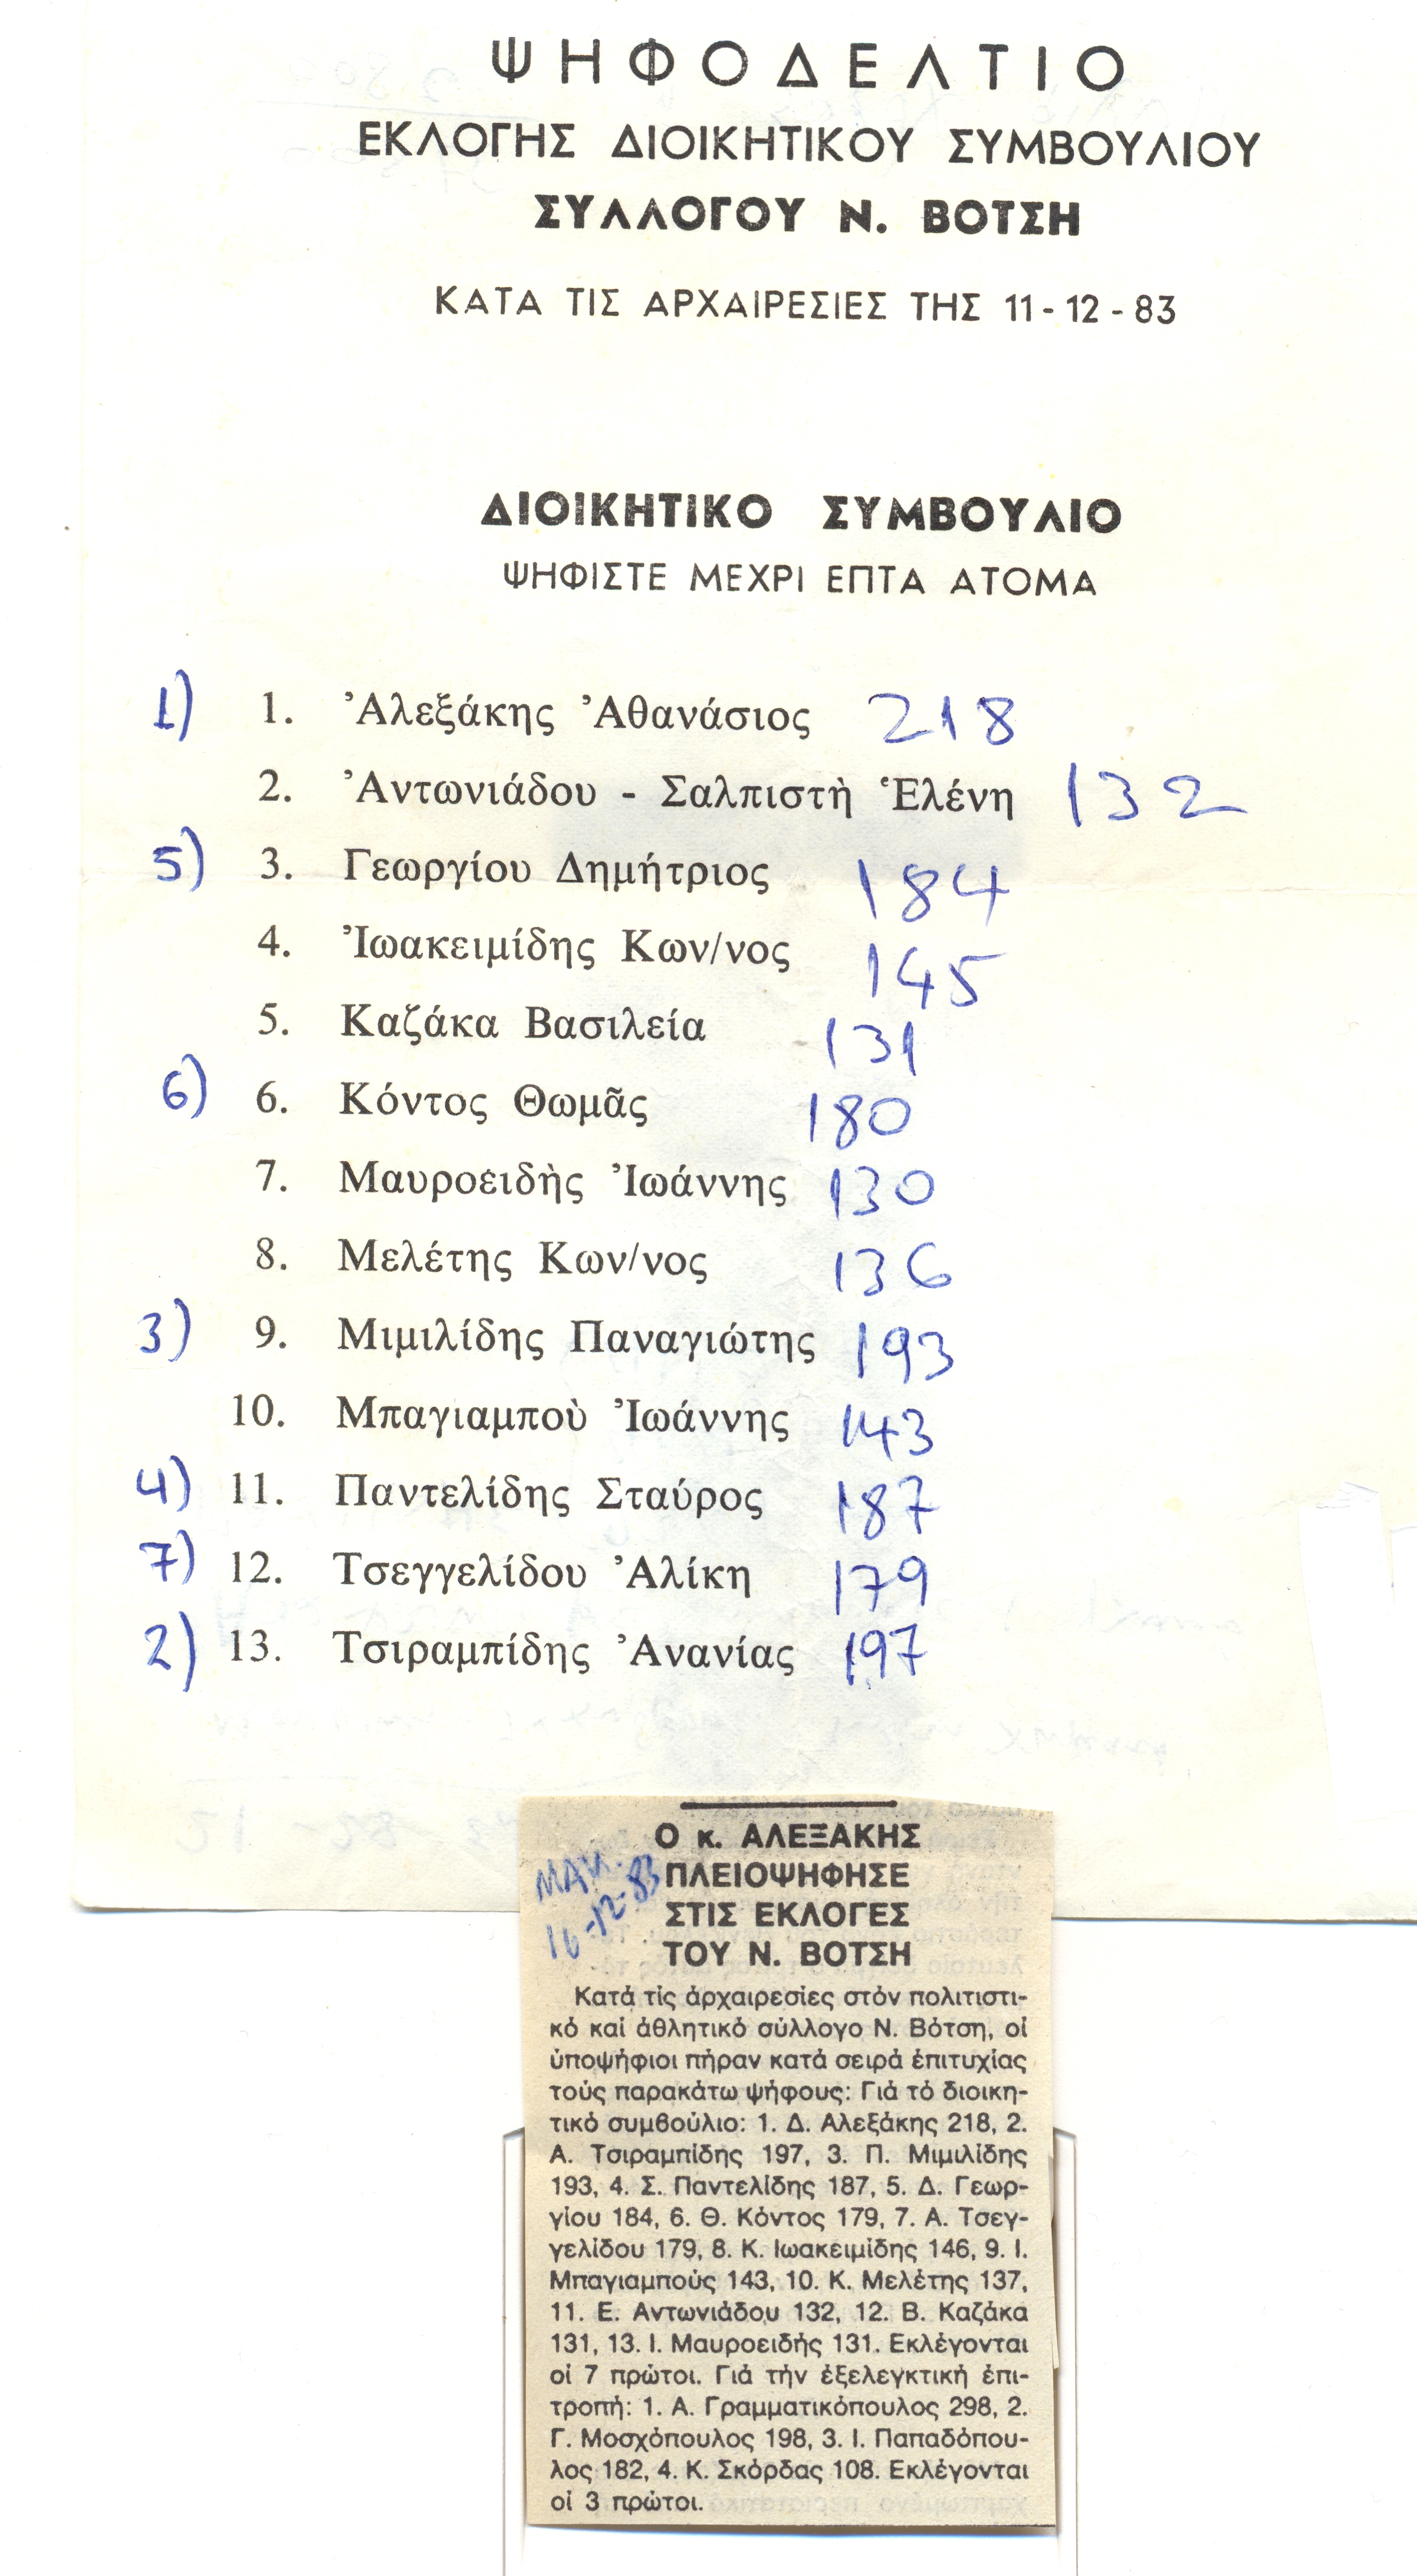 ΨΗΦΟΔΕΛΤΙΟ
ΕΚΛΟΓΗΣ ΔΙΟΙΚΗΤΙΚΟΥ ΣΥΜΒΟΥΛΙΟΥ
ΣΥΛΛΟΓΟΥ Ν. ΒΟΤΣΗ
ΚΑΤΑ ΤΙΣ ΑΡΧΑΙΡΕΣΙΕΣ ΤΗΣ 11 - 12 - 83
ΔΙΟΙΚΗΤΙΚΟ ΣΥΜΒΟΥΛΙΟ
ΨΗΦΙΣΤΕ ΜΕΧΡΙ ΕΠΤΑ ΑΤΟΜΑ
1) 1. Ἀλεξάκης Ἀθανάσιος 218
2. Ἀντωνιάδου - Σαλπιστὴ Ἑλένη 132
5) 3. Γεωργίου Δημήτριος 184
4. Ἰωακειμίδης Κων/νος 145
5. Καζάκα Βασιλεία 131
6) 6. Κόντος Θωμᾶς 180
7. Μαυροειδὴς Ἰωάννης 130
8. Μελέτης Κων/νος 136
3) 9. Μιμιλίδης Παναγιώτης 193
10. Μπαγιαμποὺ Ἰωάννης 143
4) 11. Παντελίδης Σταύρος 187
7) 12. Τσεγγελίδου Ἀλίκη 179
2) 13. Τσιραμπίδης Ἀνανίας 197
ΜΑΚ.
16-12-83
Ο κ. ΑΛΕΞΑΚΗΣ
ΠΛΕΙΟΨΗΦΗΣΕ
ΣΤΙΣ ΕΚΛΟΓΕΣ
ΤΟΥ Ν. ΒΟΤΣΗ
Κατά τίς ἀρχαιρεσίες στόν πολιτιστι-
κό καί ἀθλητικό σύλλογο Ν. Βότση, οἱ
ὑποψήφιοι πήραν κατά σειρά ἐπιτυχίας
τούς παρακάτω ψήφους: Γιά τό διοικη-
τικό συμβούλιο: 1. Δ. Αλεξάκης 218, 2.
Α. Τσιραμπίδης 197, 3. Π. Μιμιλίδης
193, 4. Σ. Παντελίδης 187, 5. Δ. Γεωρ-
γίου 184, 6. Θ. Κόντος 179, 7. Α. Τσεγ-
γελίδου 179, 8. Κ. Ιωακειμίδης 146, 9. Ι.
Μπαγιαμπούς 143, 10. Κ. Μελέτης 137,
11. Ε. Αντωνιάδου 132, 12. Β. Καζάκα
131, 13. Ι. Μαυροειδής 131. Εκλέγονται
οἱ 7 πρῶτοι. Γιά τήν ἐξελεγκτική ἐπι-
τροπή: 1. Α. Γραμματικόπουλος 298, 2.
Γ. Μοσχόπουλος 198, 3. Ι. Παπαδόπου-
λος 182, 4. Κ. Σκόρδας 108. Εκλέγονται
οἱ 3 πρῶτοι.